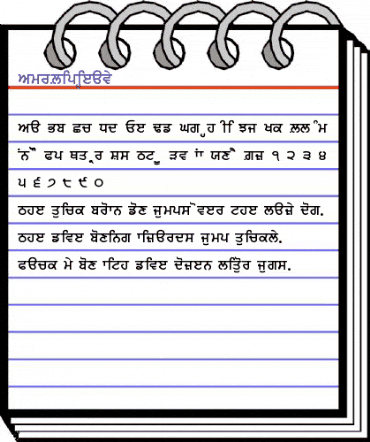 ਅਮਰ.ਲਪਿ੍ਰਿੲੳਵੇ
ਅੳ ਭਬ ਛਚ ਧਦ ਓੲ ਢਡ ਘਗ ੍ਹਹ ੀਿ ਝਜ ਖਕ ਲ਼ਲ ੰਮ
ਂਨ ੌੋ ਫਪ ਥਤ ੍ਰਰ ਸ਼ਸ ਠਟ ੂੁ ੜਵ ਾਂ ਯਣ ੈੇ ਗ਼ਜ਼ ੧ ੨ ੩ ੪
੫ ੬ ੭ ੮ ੯ ੦
ਠਹੲ ਤੁਚਿਕ ਬਰੋਾਨ ਡੋਣ ਜੁਮਪਸ ੋਵੲਰ ਟਹੲ ਲੳਜ਼ੇ ਦੋਗ.
ਠਹੲ ਡਵਿੲ ਬੋਣਨਿਗ ਾਜ਼ਿੳਰਦਸ ਜੁਮਪ ਤੁਚਿਕਲੇ.
ਫੳਚਕ ਮੇ ਬੋਣ ਾਟਿਹ ਡਵਿੲ ਦੋਜ਼ੲਨ ਲਤਿੁੋਰ ਜੁਗਸ.